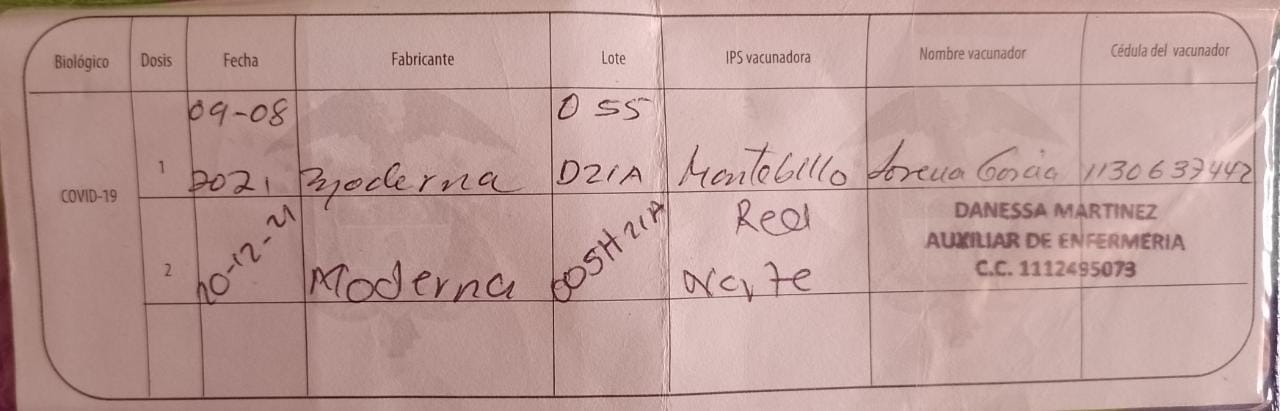 Biológico Dosis Fecha Fabricante Lote IPS vacunadora Nombre vacunador Cédula del vacunador
09-08 O55
COVID-19 1 2021 Moderna D21A Montebello Lorena Garcia 1130637442
2 10-12-21 Moderna 005H21A Red Norte DANESSA MARTINEZ
AUXILIAR DE ENFERMERIA
C.C. 1112495073